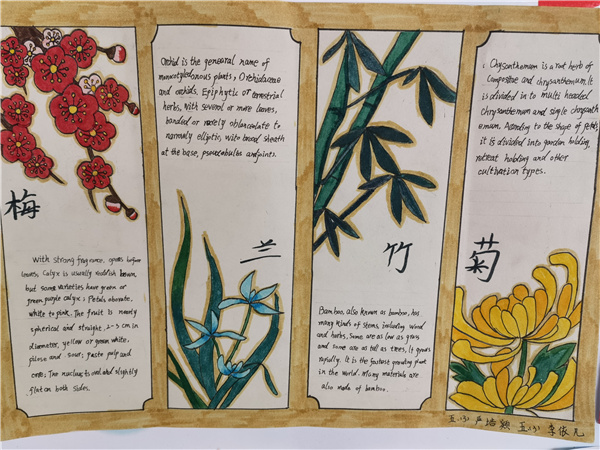 梅
With strong fragrance, grows before
leaves; Calyx is usually reddish brown,
but some varieties have green or
green purple calyx; Petals obovate,
white to pink. The fruit is nearly
spherical and straight, 2-3 cm in
diameter, yellow or green white,
and sour; paste pulp and
core; The nucleus is oval and slightly
flat on both sides.
Orchid is the general name of
monocotyledonous plants, Orchidaceae
and orchids. Epiphytic or terrestrial
herbs, with several or more leaves,
banded or rarely oblanceolate to
narrowly elliptic, with broad sheath
at the base, pseudobulbs and joints.
兰
竹
Bamboo, also known as bamboo, has
many kinds of stems, including wind
and herbs, some are low as grass
and some are as tall as trees, It grows
rapidly. It is the fastest growing plant
in the world. Many materials are
also made of bamboo.
: Chrysanthemum is a root herb of
Compositae and chrysanthemum. It
is divided in to multi headed
chrysanthemum and single chrysanth
emum. According to the shape of petals,
it is divided into garden holding,
retreat holding and other
cultivation types.
菊
五.(3) 五.(3) 李依凡